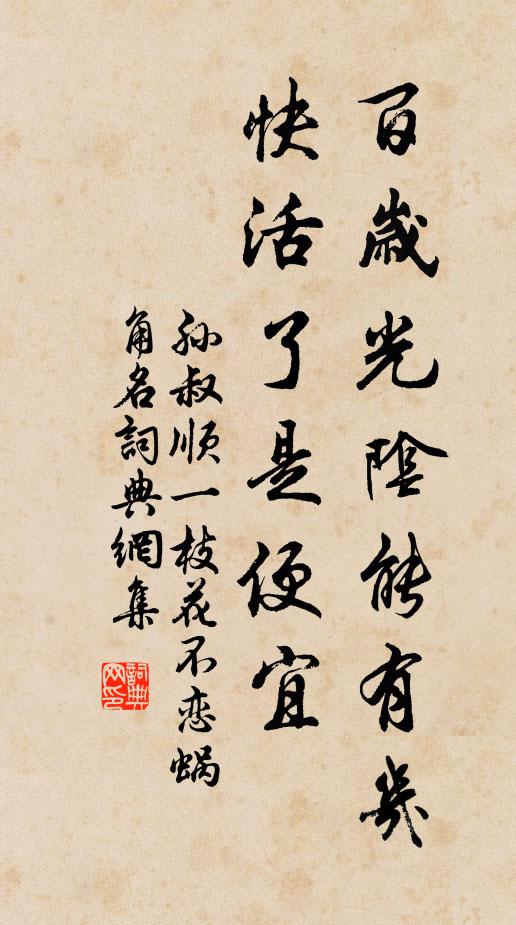 百歲光陰能有幾
快活了是便宜
孙叔顺一枝花不恋蜗
角名詞典網集
詞典
网印